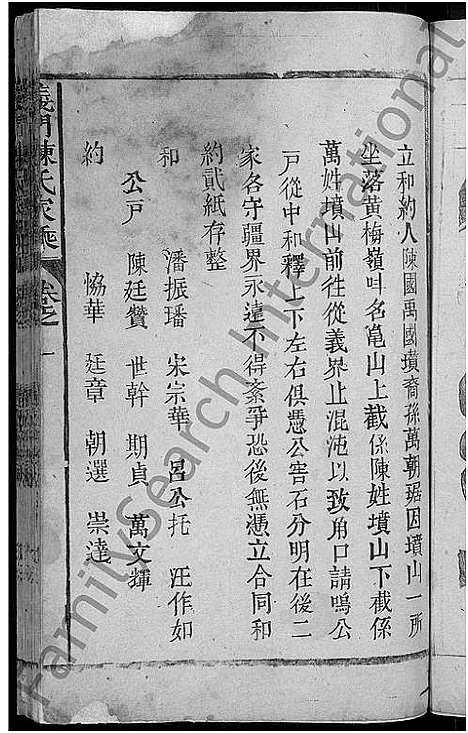 立和約人陳國禹國墳裔孫萬朝琚因墳山一所
坐落黄梅嶺叫名亀山上截係陳姓墳山下截係
萬姓墳山前徃從義界止混沌以致角口請鳴公
戸從中和釋上下左右俱憑公窖石分明在後二
家各守疆界永遠不得紊爭恐後無憑立合同和
約貳紙存整
和 潘振璠 宋宗華 呂公托 汪作如
公戸 陳廷贊 世幹 期貞 萬文輝
約 恊華 廷章 朝選 崇達
義門陳氏家乘 卷之一
FamilySearch International